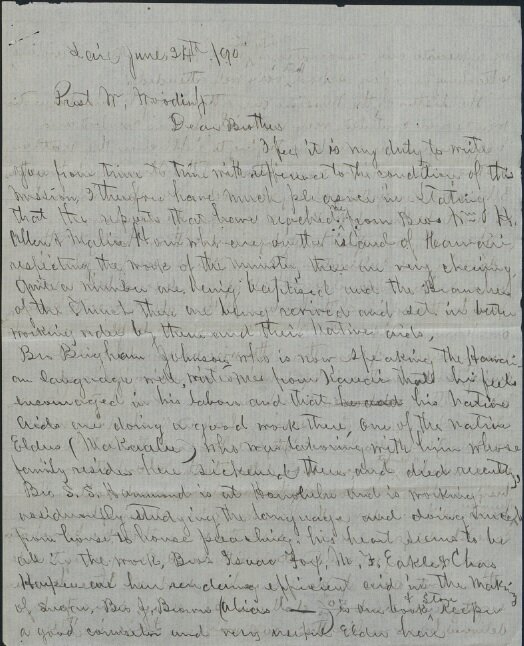 Laie June 24th /90
Prest W. Woodruff
Dear Brother
I feel it is my duty to write
you from time to time with refference to the condition of this
Mission, I therefore have much pleasure in stating
that the reports that have reached me from Bros Wm H.
Allen & Matine who are on the island of Hawaii
respecting the work of the ministry there are very cheering
Quite a number are being baptised and the Branches
of the Church there are being revived and set in better
working order by them and their Native aids,
Bro Bingham Johnson, who is now speaking the Hawaii-
an language well, writes me from Kauai that he feels
encouraged in his labour and that his Native
aids are doing a good work there, One of the native
Elders ( ) who was labouring with him whose
family resides here sickened there and died recently,
Bro S. S. Hammond is at Honolulu and is working
assiduously studying the language and doing much
from house to house preaching, his heart seems to be
all in the work, Bros Isaac Fox, M, F, Eakle & Chas
are here rendering efficient aid in the making
of sugar, Bro J, Brown (alias ) is our book & Store keeper
a good counselor and very useful Elder here